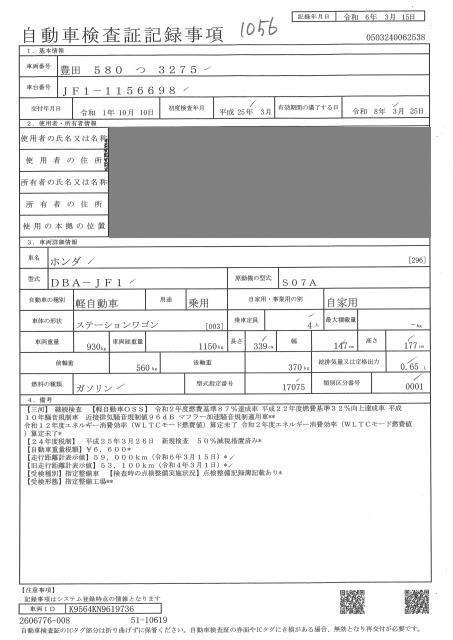 記録年月日 令和 6年 3月 15日
自動車検査証記録事項 1056
0503240062538
1．基本情報
車両番号 豊田 580 つ 3275
車台番号 JF1-1156698
交付年月日 令和 1年 10月 10日 初度検査年月 平成 25年 3月 有効期間の満了する日 令和 8年 3月 25日
2．使用者・所有者情報
使用者の氏名又は名称
使用者の住所
所有者の氏名又は名称
所有者の住所
使用の本拠の位置
3．車両詳細情報
車名 ホンダ [296]
型式 DBA-JF1 原動機の型式 S07A
自動車の種別 軽自動車 用途 乗用 自家用・事業用の別 自家用
車体の形状 ステーションワゴン [003] 乗車定員 4人 最大積載量 -kg
車両重量 930kg 車両総重量 1150kg 長さ 339cm 幅 147cm 高さ 177cm
前軸重 560kg 後軸重 370kg 総排気量又は定格出力 0.65 L
燃料の種類 ガソリン 型式指定番号 17075 類別区分番号 0001
4．備考
【三河】 継続検査 【軽自動車OSS】 令和2年度燃費基準87%達成車 平成22年度燃費基準32%向上達成車 平成
10年騒音規制車 近接排気騒音規制値96dB マフラー加速騒音規制適用車**
令和12年度エネルギー消費効率(WLTCモード燃費値)算定未了 令和2年度エネルギー消費効率(WLTCモード燃費値
)算定未了*
【24年度税制】 平成25年3月26日 新規検査 50%減税措置済み*
【自動車重量税額】¥6,600*
【走行距離計表示値】59,000km(令和6年3月15日)*
【旧走行距離計表示値】53,100km(令和4年3月1日)*
【受検種別】指定整備車 【検査時の点検整備実施状況】点検整備記録簿記載あり*
【受検形態】指定整備工場**
【注意事項】
記録事項はシステム登録時点の情報となります
車両ID K9564KN9619736
2606776-008 51-10619
自動車検査証のICタグ部分は折り曲げずに保管ください。自動車検査証の券面やICタグにき損がある場合、無効となり再交付が必要です。